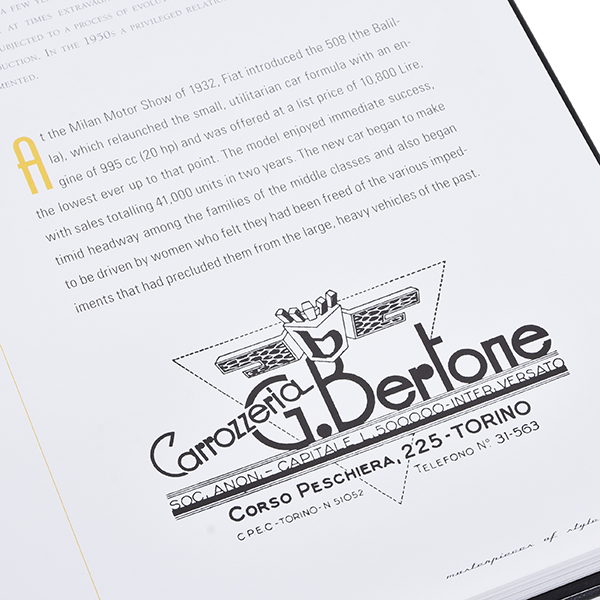 A FEW YE
AT TIMES EXTRAVAG
SUBJECTED TO A PROCESS OF EVOLU
UCTION. IN THE 1950S A PRIVILEGED RELATIO
MENTED.
At the Milan Motor Show of 1932, Fiat introduced the 508 (the Balil-
la), which relaunched the small, utilitarian car formula with an en-
gine of 995 cc (20 hp) and was offered at a list price of 10,800 Lire,
the lowest ever up to that point. The model enjoyed immediate success,
with sales totalling 41,000 units in two years. The new car began to make
timid headway among the families of the middle classes and also began
to be driven by women who felt they had been freed of the various imped-
iments that had precluded them from the large, heavy vehicles of the past.
b
Carrozzeria
G.Bertone
SOC. ANON. - CAPITALE L. 500000 - INTER. VERSATO
CORSO PESCHIERA, 225 - TORINO
C.P.E.C - TORINO - N 51052
TELEFONO N° 31-563
masterpieces of style